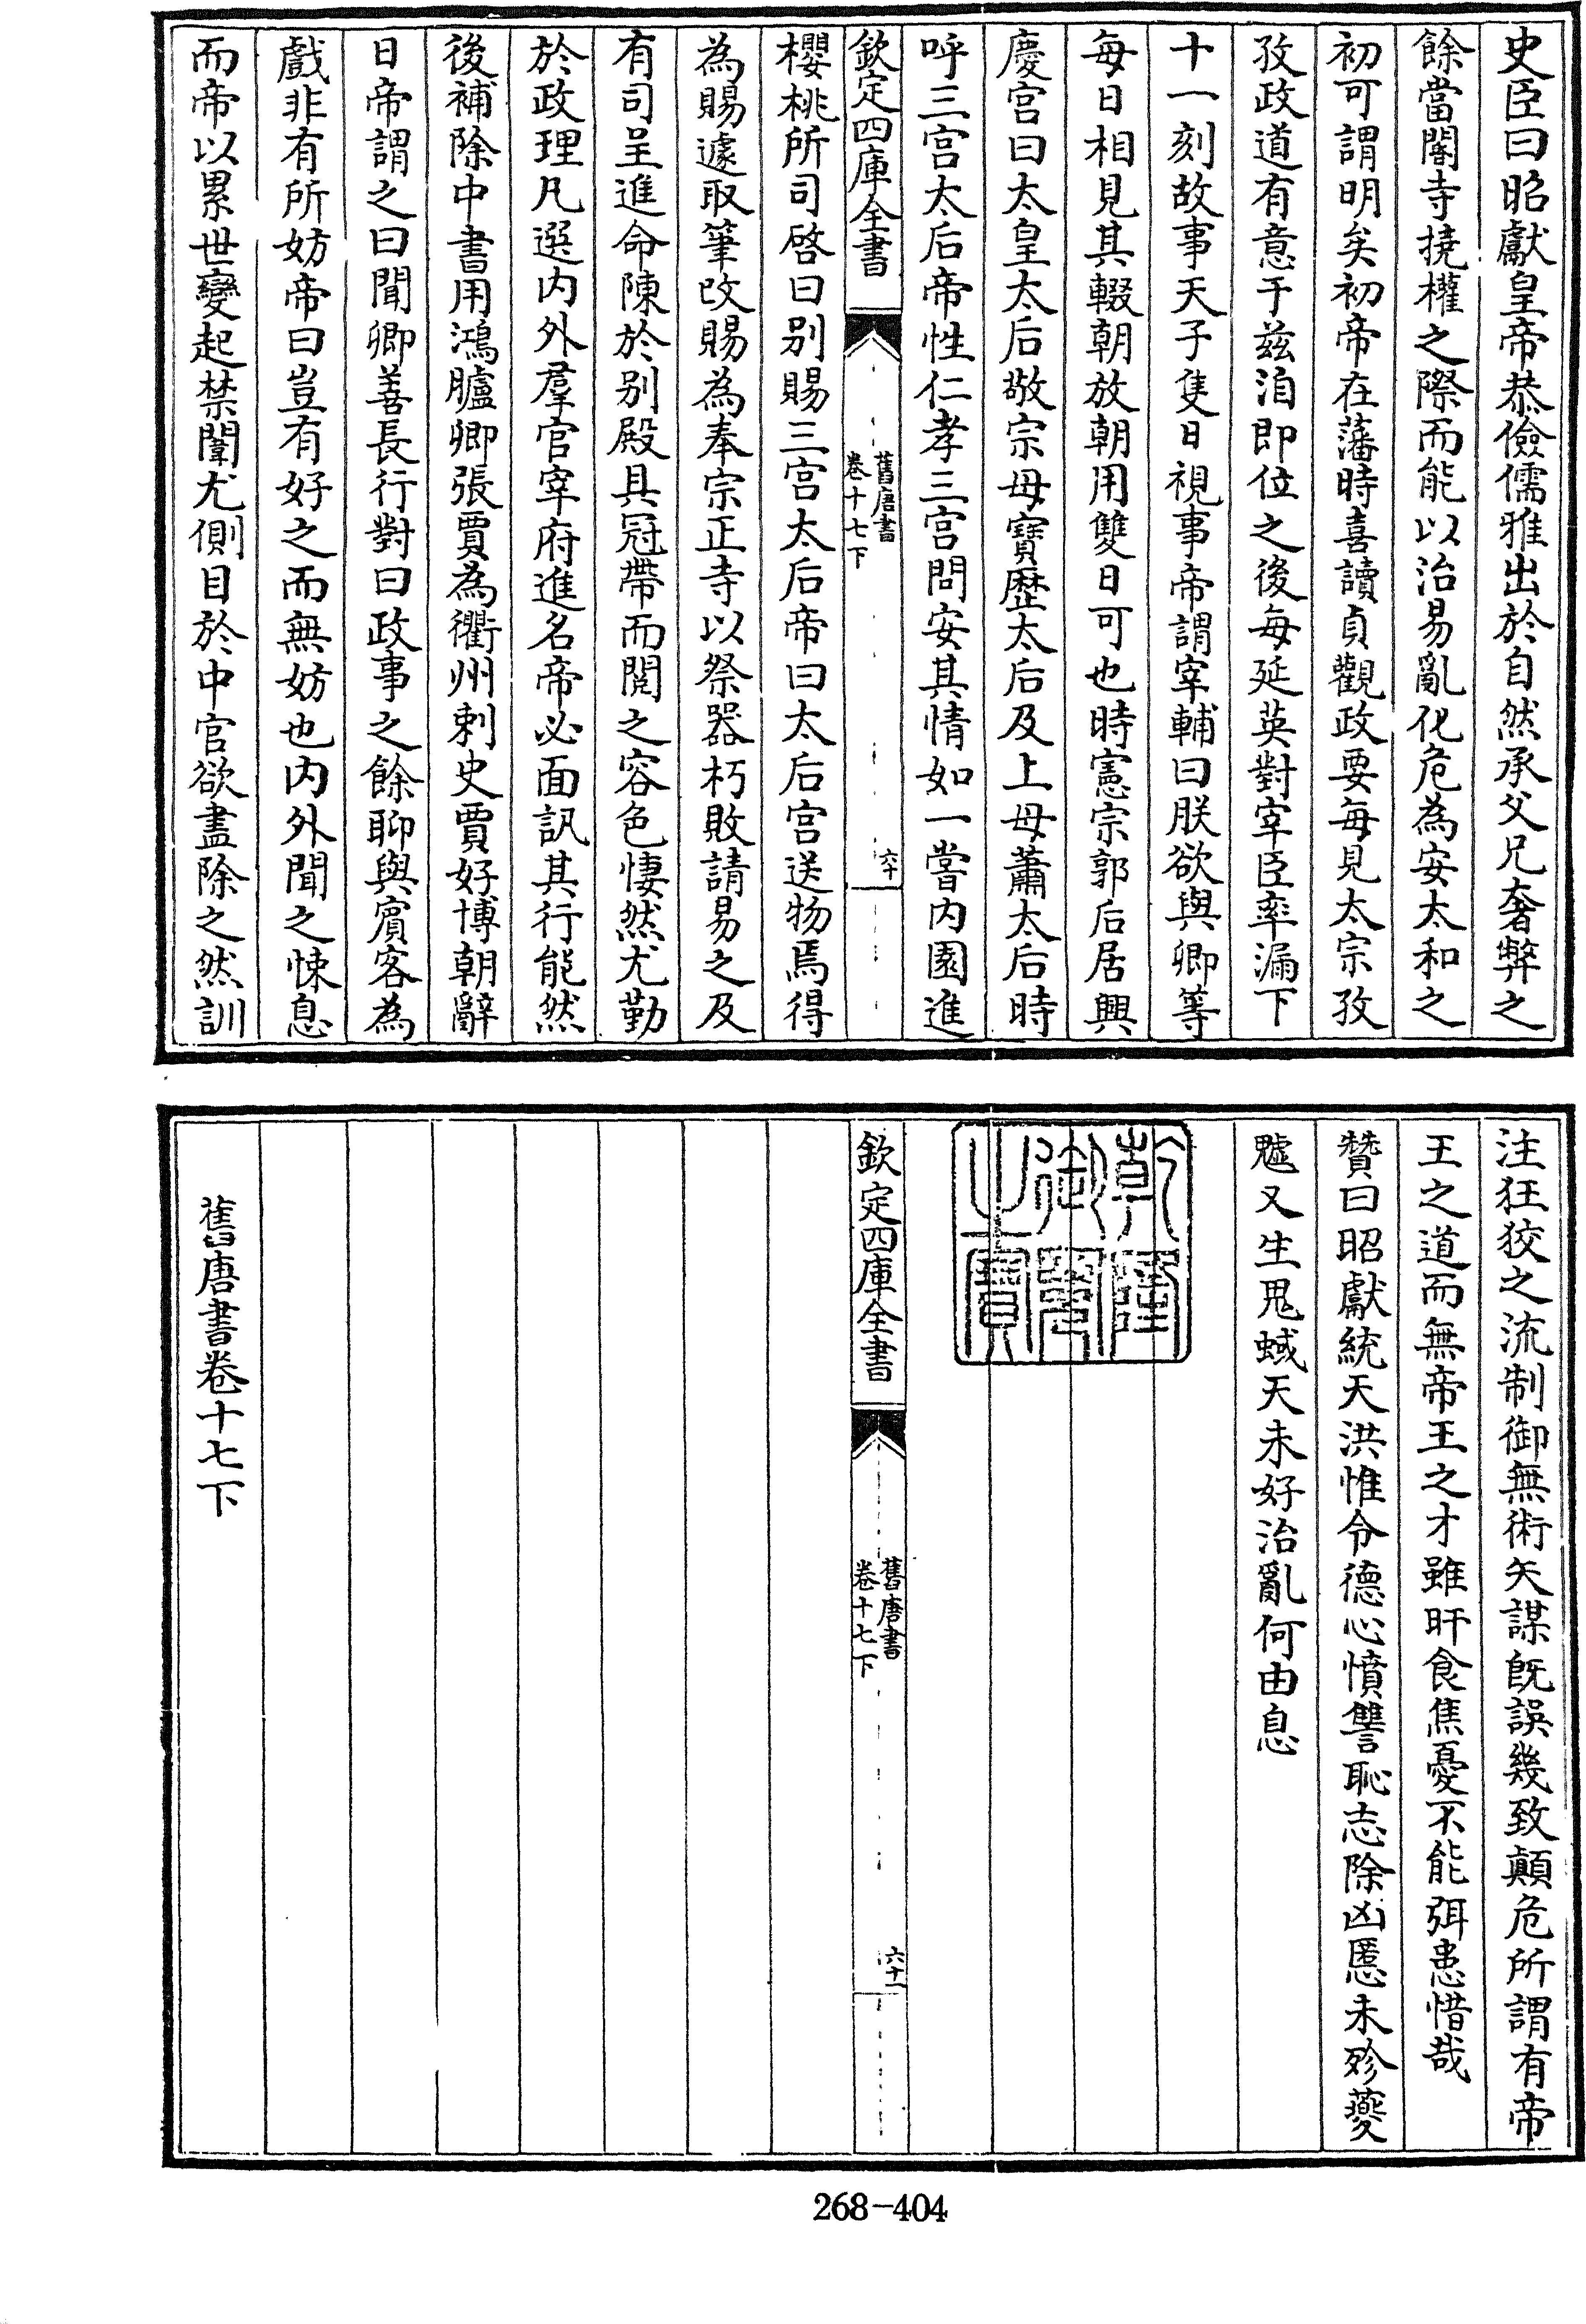 史臣曰昭獻皇帝恭儉儒雅出於自然承父兄奢弊之
餘當閽寺撓權之際而能以治易亂化危為安太和之
初可謂明矣初帝在藩時喜讀貞觀政要每見太宗孜
孜政道有意于兹洎即位之後每延英對宰臣率漏下
十一刻故事天子隻日視事帝謂宰輔曰朕欲與卿等
每日相見其輟朝放朝用雙日可也時憲宗郭后居興
慶宫曰太皇太后敬宗母寶歷太后及上母蕭太后時
呼三宫太后帝性仁孝三宫問安其情如一嘗内園進
欽定四庫全書
舊唐書
卷十七下
六十
櫻桃所司啓曰别賜三宫太后帝曰太后宫送物焉得
為賜遽取筆改賜為奉宗正寺以祭器朽敗請易之及
有司呈進命陳於别殿具冠帶而閱之容色悽然尤勤
於政理凡選内外羣官宰府進名帝必面訊其行能然
後補除中書用鴻臚卿張賈為衢州刺史賈好博朝辭
日帝謂之曰聞卿善長行對曰政事之餘聊與賓客為
戲非有所妨帝曰豈有好之而無妨也内外聞之悚息
而帝以累世變起禁闈尤側目於中官欲盡除之然訓
注狂狡之流制御無術矢謀旣誤幾致顛危所謂有帝
王之道而無帝王之才雖旰食焦憂不能弭患惜哉
贊曰昭獻統天洪惟令德心憤讐恥志除凶慝未殄夔
魖又生鬼蜮天未好治亂何由息
乾隆
御覽
之寶
欽定四庫全書
舊唐書
卷十七下
六十一
舊唐書卷十七下
268-404